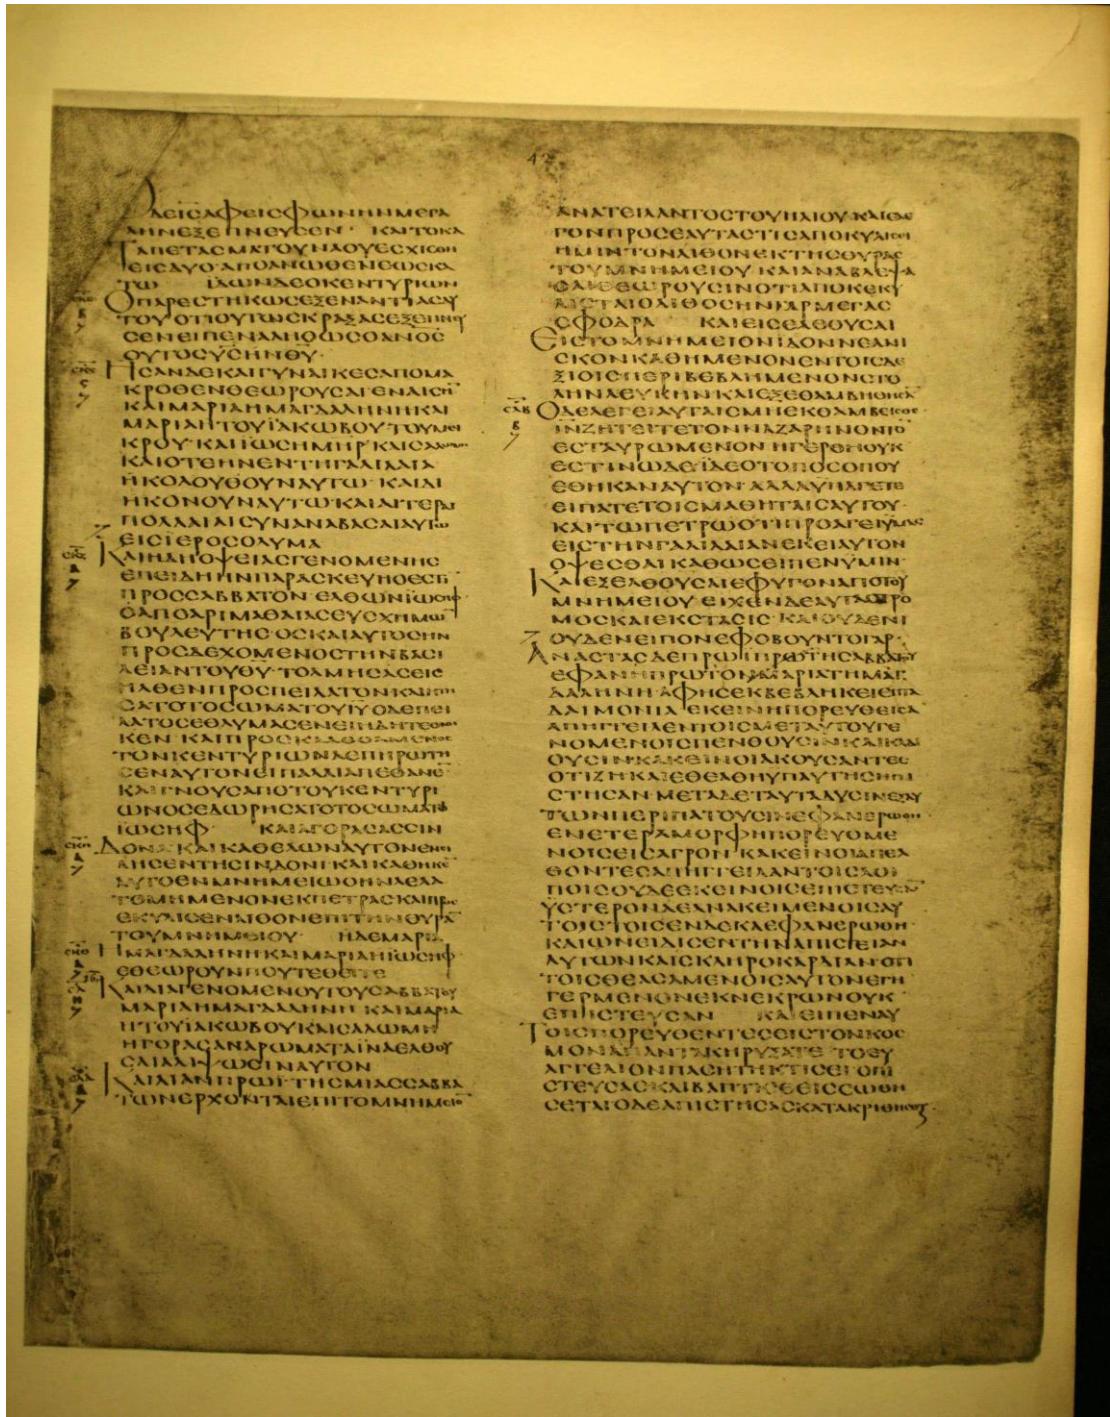 ΔΕΙΣΑΦΕΙΣΦΩΝΗΝΜΕΓΑ
ΛΗΝΕΞΕΠΝΕΥΣΕΝ· ΚΑΙΤΟΚΑ
ΤΑΠΕΤΑΣΜΑΤΟΥΝΑΟΥΕΣΧΙΣΘΗ
ΕΙΣΔΥΟ·ΑΠΟΑΝΩΘΕΝΕΩΣΚΑ
ΤΩ ΙΔΩΝΔΕΟΚΕΝΤΥΡΙΩΝ
ΟΠΑΡΕΣΤΗΚΩΣΕΞΕΝΑΝΤΙΑΣΑΥ
ΤΟΥΟΤΙΟΥΤΩΣΚΡΑΞΑΣΕΞΕΠΝΕΥ
ΣΕΝΕΙΠΕΝΑΛΗΘΩΣΟΑΝΟΣ
ΟΥΤΟΣΥΣΗΝΘΥ·
ΗΣΑΝΔΕΚΑΙΓΥΝΑΙΚΕΣΑΠΟΜΑ
ΚΡΟΘΕΝΘΕΩΡΟΥΣΑΙ·ΕΝΑΙΣΗ
ΚΑΙΜΑΡΙΑΗΜΑΓΔΑΛΗΝΗΚΑΙ
ΜΑΡΙΑΗΤΟΥΪΑΚΩΒΟΥΤΟΥΜΕΙ
ΚΡΟΥ·ΚΑΙΪΩΣΗΜΗΡ·ΚΑΙΣΑΛΩΜΗ
ΚΑΙΟΤΕΗΝΕΝΤΗΓΑΛΙΛΑΙΑ
ΗΚΟΛΟΥΘΟΥΝΑΥΤΩ· ΚΑΙΔΙ
ΗΚΟΝΟΥΝΑΥΤΩ·ΚΑΙΑΛΛΑΙ
ΠΟΛΛΑΙΑΙΣΥΝΑΝΑΒΑΣΑΙΑΥΤΩ
ΕΙΣΙΕΡΟΣΟΛΥΜΑ
ΚΑΙΗΔΗΟΨΕΙΑΣΓΕΝΟΜΕΝΗΣ
ΕΠΕΙΔΗΗΝΠΑΡΑΣΚΕΥΗΟΕΣΤΙ
ΠΡΟΣΣΑΒΒΑΤΟΝ·ΕΛΘΩΝΪΩΣΗΦ·
ΟΑΠΟΑΡΙΜΑΘΑΙΑΣΕΥΣΧΗΜΩ
ΒΟΥΛΕΥΤΗΣ·ΟΣΚΑΙΑΥΤΟΣΗΝ
ΠΡΟΣΔΕΧΟΜΕΝΟΣΤΗΝΒΑΣΙ
ΛΕΙΑΝΤΟΥΘΥ·ΤΟΛΜΗΣΑΣΕΙΣ
ΗΛΘΕΝΠΡΟΣΠΕΙΛΑΤΟΝΚΑΙΗΤΗ
ΣΑΤΟΤΟΣΩΜΑΤΟΥΙΥ·ΟΔΕΠΕΙ
ΛΑΤΟΣΕΘΑΥΜΑΣΕΝΕΙΗΔΗΤΕΘΝΗ
ΚΕΝ·ΚΑΙΠΡΟΣΚΑΛΕΣΑΜΕΝΟΣ
ΤΟΝΚΕΝΤΥΡΙΩΝΑΕΠΗΡΩΤΗ
ΣΕΝΑΥΤΟΝΕΙΠΑΛΑΙΑΠΕΘΑΝΕ·
ΚΑΙΓΝΟΥΣΑΠΟΤΟΥΚΕΝΤΥΡΙ
ΩΝΟΣΕΔΩΡΗΣΑΤΟΤΟΣΩΜΑΤΩ
ΪΩΣΗΦ· ΚΑΙΑΓΟΡΑΣΑΣΣΙΝ
ΔΟΝΑ·ΚΑΙΚΑΘΕΛΩΝΑΥΤΟΝΕΝΕΙ
ΛΗΣΕΝΤΗΣΙΝΔΟΝΙ·ΚΑΙΚΑΘΗΚΕ
ΑΥΤΟΕΝΜΝΗΜΕΙΩΟΗΝΛΕΛΑ
ΤΟΜΗΜΕΝΟΝΕΚΠΕΤΡΑΣΚΑΙΠΡΟΣ
ΕΚΥΛΙΣΕΝΛΙΘΟΝΕΠΙΤΗΝΘΥΡΑ
ΤΟΥΜΝΗΜΕΙΟΥ· ΗΔΕΜΑΡΙΑ
ΗΜΑΓΔΑΛΗΝΗΚΑΙΜΑΡΙΑΗΪΩΣΗΦ·
ΕΘΕΩΡΟΥΝΠΟΥΤΕΘΕΙΤΕ
ΚΑΙΔΙΑΓΕΝΟΜΕΝΟΥΤΟΥΣΑΒΒΑΤΟΥ
ΜΑΡΙΑΗΜΑΓΔΑΛΗΝΗ·ΚΑΙΜΑΡΙΑ
ΗΤΟΥΪΑΚΩΒΟΥΚΑΙΣΑΛΩΜΗ
ΗΓΟΡΑΣΑΝΑΡΩΜΑΤΑΪΝΑΕΛΘΟΥ
ΣΑΙΑΛΙΨΩΣΙΝΑΥΤΟΝ
ΚΑΙΛΙΑΝΠΡΩΪ·ΤΗΣΜΙΑΣΣΑΒΒΑ
ΤΩΝΕΡΧΟΝΤΑΙΕΠΙΤΟΜΝΗΜΕΙΟ
ΑΝΑΤΕΙΛΑΝΤΟΣΤΟΥΗΛΙΟΥ·ΚΑΙΕΛΕ
ΓΟΝΠΡΟΣΕΑΥΤΑΣΤΙΣΑΠΟΚΥΛΙΣΕΙ
ΗΜΙΝΤΟΝΛΙΘΟΝΕΚΤΗΣΘΥΡΑΣ
ΤΟΥΜΝΗΜΕΙΟΥ·ΚΑΙΑΝΑΒΛΕΨΑ
ΣΑΙΘΕΩΡΟΥΣΙΝΟΤΙΑΠΟΚΕΚΥ
ΛΙΣΤΑΙΟΛΙΘΟΣΗΝΓΑΡΜΕΓΑΣ
ΣΦΟΔΡΑ ΚΑΙΕΙΣΕΛΘΟΥΣΑΙ
ΕΙΣΤΟΜΝΗΜΕΙΟΝΙΔΟΝΝΕΑΝΙ
ΣΚΟΝΚΑΘΗΜΕΝΟΝΕΝΤΟΙΣΔΕ
ΞΙΟΙΣΠΕΡΙΒΕΒΛΗΜΕΝΟΝΣΤΟ
ΛΗΝΛΕΥΚΗΝΚΑΙΕΞΕΘΑΜΒΗΘΗΣΑ
ΟΔΕΛΕΓΕΙΑΥΤΑΙΣΜΗΕΚΘΑΜΒΕΙΣΘΕ·
ΙΝΖΗΤΕΙΤΕΤΟΝΝΑΖΑΡΗΝΟΝΤΟ
ΕΣΤΑΥΡΩΜΕΝΟΝ·ΗΓΕΡΘΗΟΥΚ
ΕΣΤΙΝΩΔΕ·ΪΔΕΟΤΟΠΟΣΟΠΟΥ
ΕΘΗΚΑΝΑΥΤΟΝ·ΑΛΛΑΥΠΑΓΕΤΕ
ΕΙΠΑΤΕΤΟΙΣΜΑΘΗΤΑΙΣΑΥΤΟΥ·
ΚΑΙΤΩΠΕΤΡΩΟΤΙΠΡΟΑΓΕΙΥΜΑΣ
ΕΙΣΤΗΝΓΑΛΙΛΑΙΑΝΕΚΕΙΑΥΤΟΝ
ΟΨΕΣΘΑΙ·ΚΑΘΩΣΕΙΠΕΝΥΜΙΝ·
ΚΑΙΕΞΕΛΘΟΥΣΑΙΕΦΥΓΟΝΑΠΟΤΟΥ
ΜΝΗΜΕΙΟΥ·ΕΙΧΕΝΔΕΑΥΤΑΣΤΡΟ
ΜΟΣΚΑΙΕΚΣΤΑΣΙΣ·ΚΑΙΟΥΔΕΝΙ
ΟΥΔΕΝΕΙΠΟΝΕΦΟΒΟΥΝΤΟΓΑΡ·
ΑΝΑΣΤΑΣΔΕΠΡΩΪΠΡΩΤΗΣΑΒΒΑΤΟΥ
ΕΦΑΝΗΠΡΩΤΟΝΜΑΡΙΑΤΗΜΑΓ
ΔΑΛΗΝΗ·ΑΦΗΣΕΚΒΕΒΛΗΚΕΙΕΠΤΑ
ΔΑΙΜΟΝΙΑ·ΕΚΕΙΝΗΠΟΡΕΥΘΕΙΣΑ
ΑΠΗΓΓΕΙΛΕΝΤΟΙΣΜΕΤΑΥΤΟΥΓΕ
ΝΟΜΕΝΟΙΣΠΕΝΘΟΥΣΙΝΚΑΙΚΛΑΙ
ΟΥΣΙΝΚΑΚΕΙΝΟΙΑΚΟΥΣΑΝΤΕΣ
ΟΤΙΖΗΚΑΙΕΘΕΑΘΗΥΠΑΥΤΗΣΗΠΙ
ΣΤΗΣΑΝ·ΜΕΤΑΔΕΤΑΥΤΑΔΥΣΙΝΕΞΑΥ
ΤΩΝΠΕΡΙΠΑΤΟΥΣΙΝΕΦΑΝΕΡΩΘΗ
ΕΝΕΤΕΡΑΜΟΡΦΗΠΟΡΕΥΟΜΕ
ΝΟΙΣΕΙΣΑΓΡΟΝ·ΚΑΚΕΙΝΟΙΑΠΕΛ
ΘΟΝΤΕΣΑΠΗΓΓΕΙΛΑΝΤΟΙΣΛΟΙ
ΠΟΙΣΟΥΔΕΕΚΕΙΝΟΙΣΕΠΙΣΤΕΥΣΑ
ΥΣΤΕΡΟΝΔΕΑΝΑΚΕΙΜΕΝΟΙΣΑΥ
ΤΟΙΣΤΟΙΣΕΝΔΕΚΑΕΦΑΝΕΡΩΘΗ
ΚΑΙΩΝΕΙΔΙΣΕΝΤΗΝΑΠΙΣΤΕΙΑΝ
ΑΥΤΩΝΚΑΙΣΚΛΗΡΟΚΑΡΔΙΑΝΟΤΙ
ΤΟΙΣΘΕΑΣΑΜΕΝΟΙΣΑΥΤΟΝΕΓΗ
ΓΕΡΜΕΝΟΝΕΚΝΕΚΡΩΝΟΥΚ
ΕΠΙΣΤΕΥΣΑΝ ΚΑΙΕΙΠΕΝΑΥ
ΤΟΙΣΠΟΡΕΥΘΕΝΤΕΣΕΙΣΤΟΝΚΟΣ
ΜΟΝΑΠΑΝΤΑΚΗΡΥΞΑΤΕΤΟΕΥ
ΑΓΓΕΛΙΟΝΠΑΣΗΤΗΚΤΙΣΕΙ·ΟΠΙ
ΣΤΕΥΣΑΣΚΑΙΒΑΠΤΙΣΘΕΙΣΣΩΘΗ
ΣΕΤΑΙΟΔΕΑΠΙΣΤΗΣΑΣΚΑΤΑΚΡΙΘΗΣΕΤΑΙ·